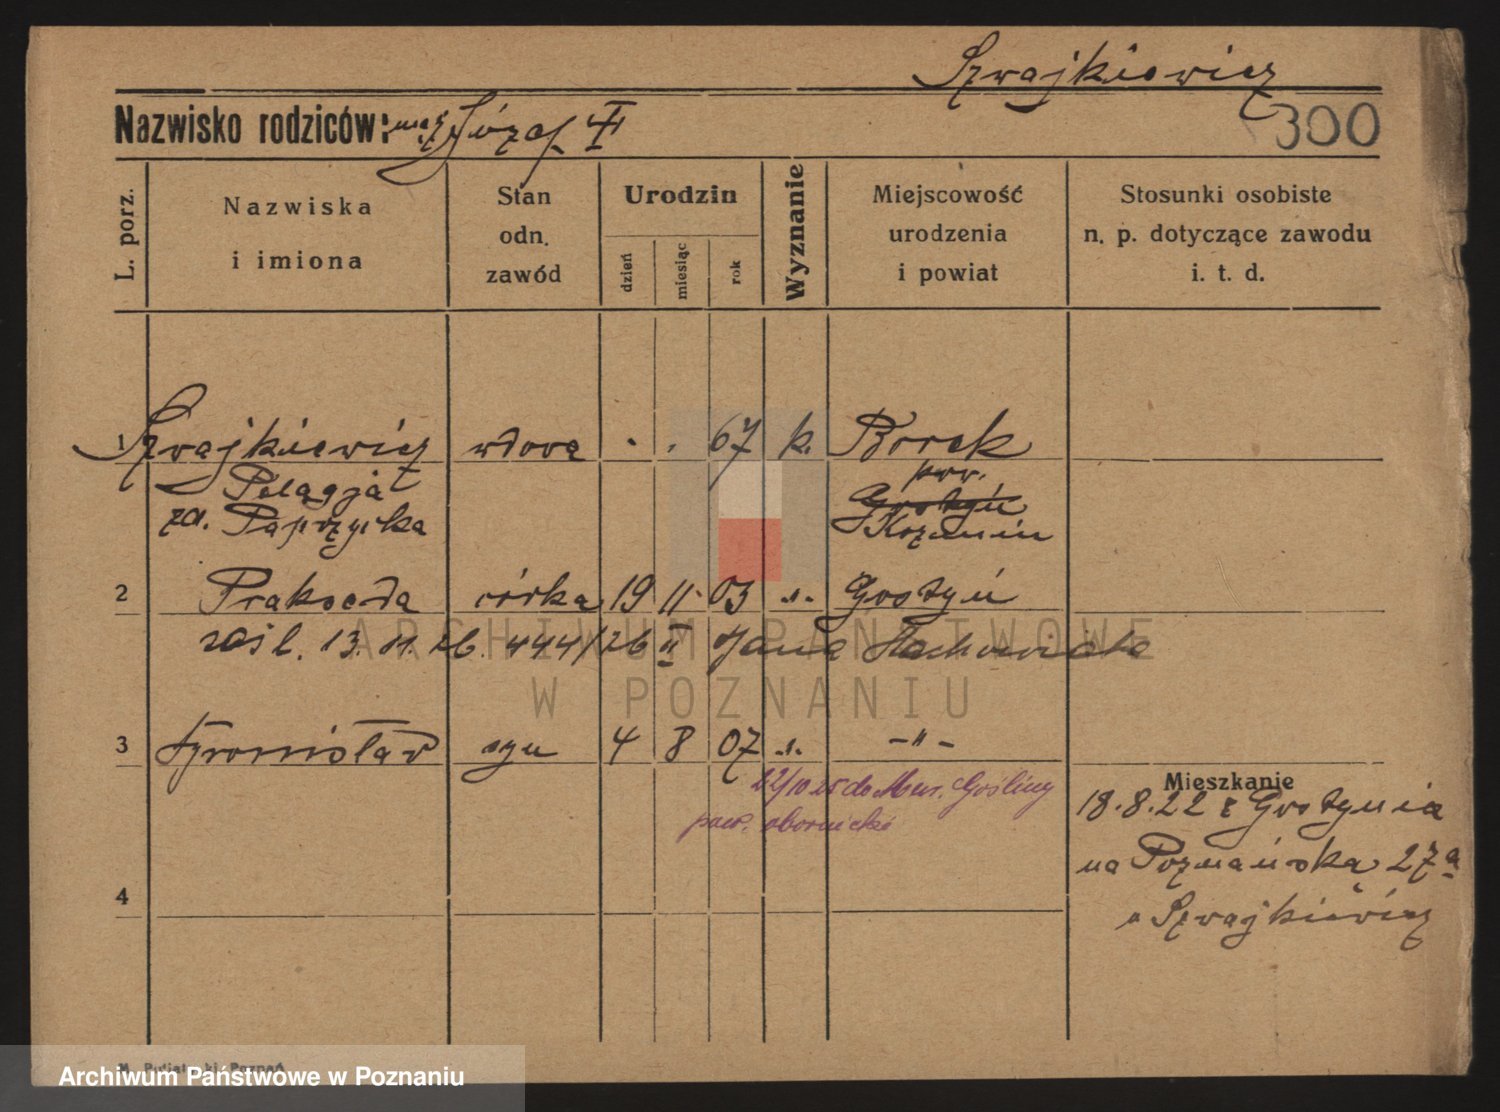 Szwajkiewicz
Nazwisko rodziców: mąż Józef †
300
L. porz.
Nazwiska
i imiona
Stan
odn.
zawód
Urodzin
dzień
miesiąc
rok
Wyznanie
Miejscowość
urodzenia
i powiat
Stosunki osobiste
n. p. dotyczące zawodu
i. t. d.
1 Szwajkiewicz wdowa . . 67 k. Borek
Pelagja pow.
Gostyń
zd. Paprzycka Kozmin
2 Prakseda córka 19 11 03 -"- Gostyń
zaśl. 13. 11. 26. 444/26 II Jana
ARCHIWUM PAŃSTWOWE
W POZNANIU
3 Bronisław syn 4 8 07 -"- -"-
22/10 25 do Mur. Gośliny
pow. obornicki
Mieszkanie
18.8.22 z Gostynia
na Poznańską 27a
u Szwajkiewicz
4
Archiwum Państwowe w Poznaniu